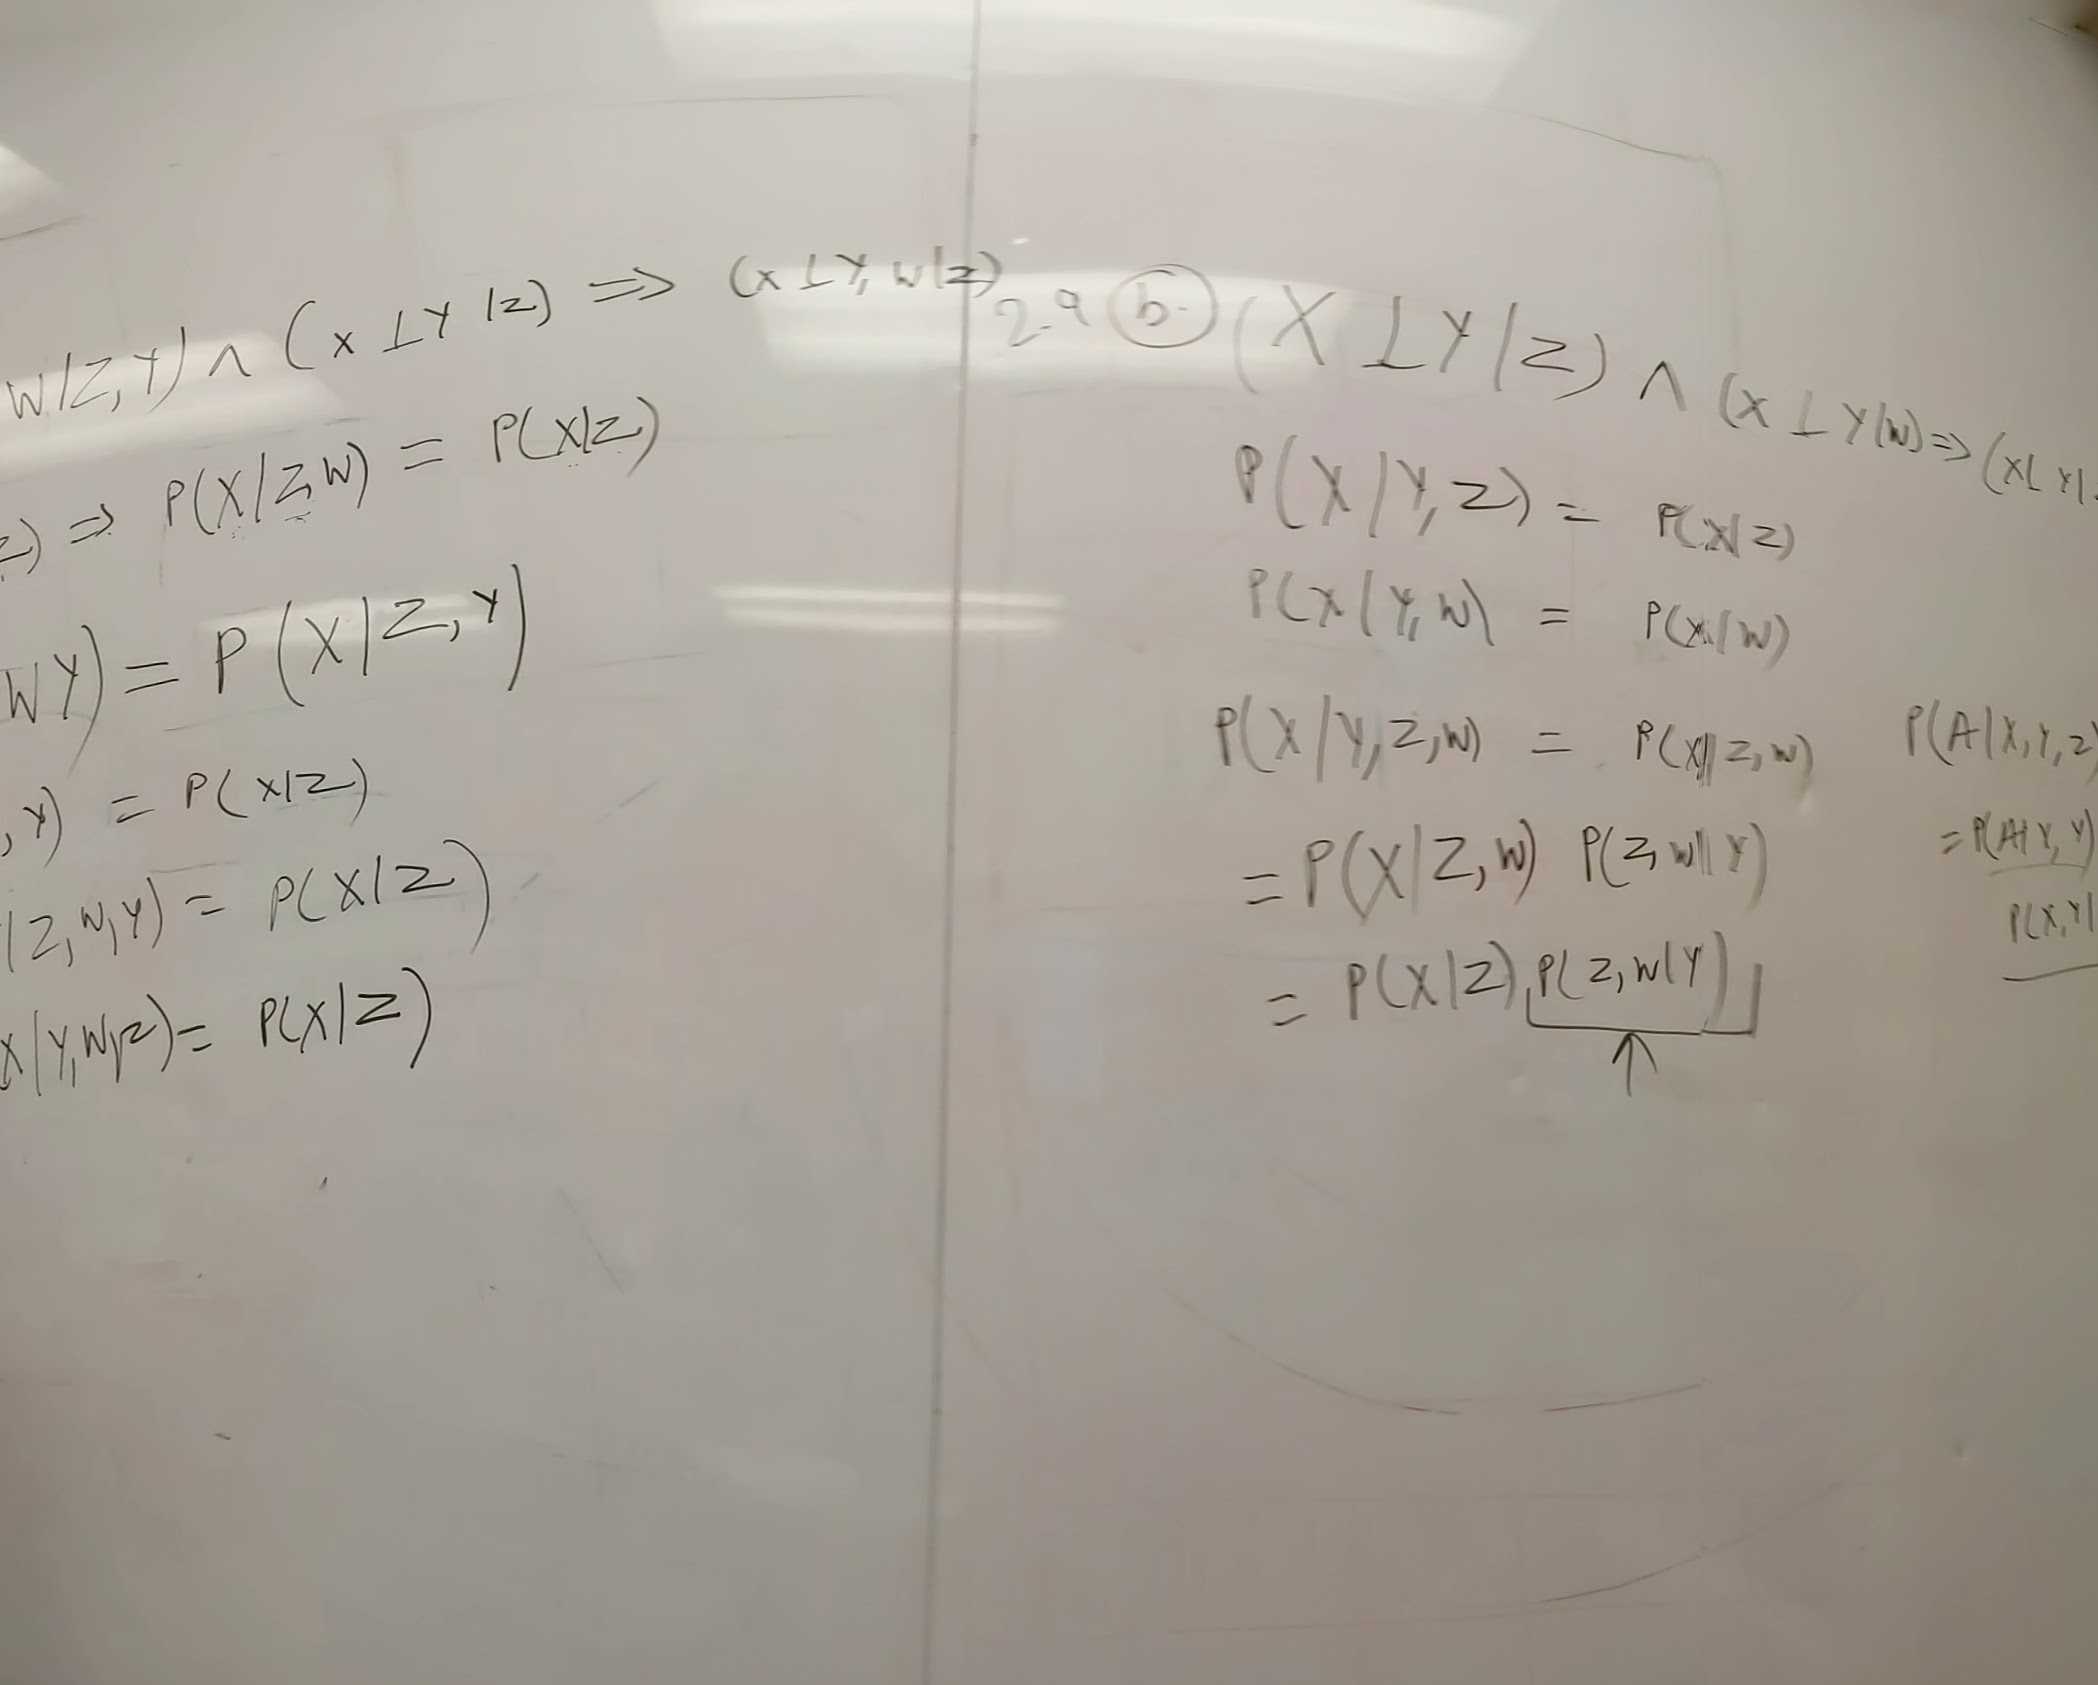 W|Z,Y) ∧ (X ⊥ Y |Z) ⟹ (X ⊥ Y, W|Z)
Z) ⇒ P(X|Z,W) = P(X|Z)
WY) = P(X|Z,Y)
,Y) = P(X|Z)
|Z,W,Y) = P(X|Z)
X|Y,W,Z) = P(X|Z)
2.9 b. (X ⊥ Y|Z) ∧ (X ⊥ Y|W) ⇒ (X ⊥ Y|
P(X|Y,Z) = P(X|Z)
P(X|Y,W) = P(X|W)
P(X|Y,Z,W) = P(X|Z,W)
= P(X|Z,W) P(Z,W|Y)
= P(X|Z) P(Z,W|Y)
↑
P(A|X,Y,Z)
P(X,Y|